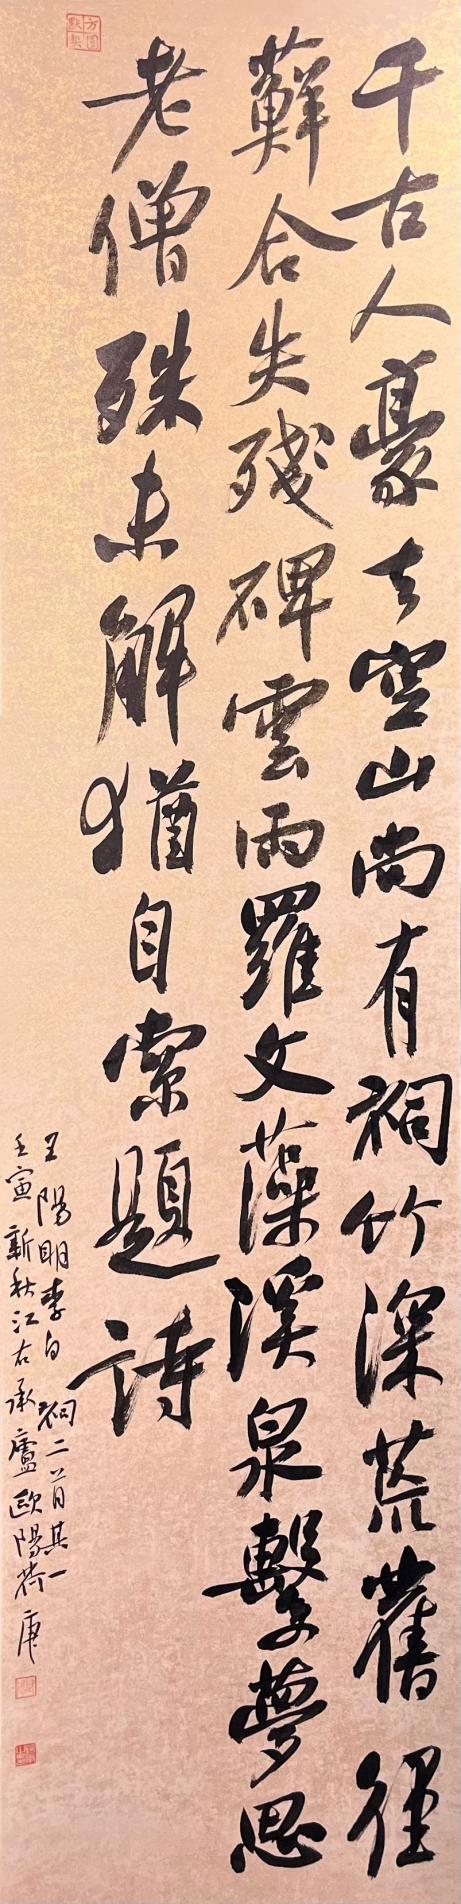 千古人豪去空山尚有祠竹深荒舊徑
蘚合失殘碑雲雨羅文藻溪泉繫夢思
老僧殊未解猶自索題詩
王陽明李白祠二首其一
壬寅新秋江右承廬歐陽荷庚